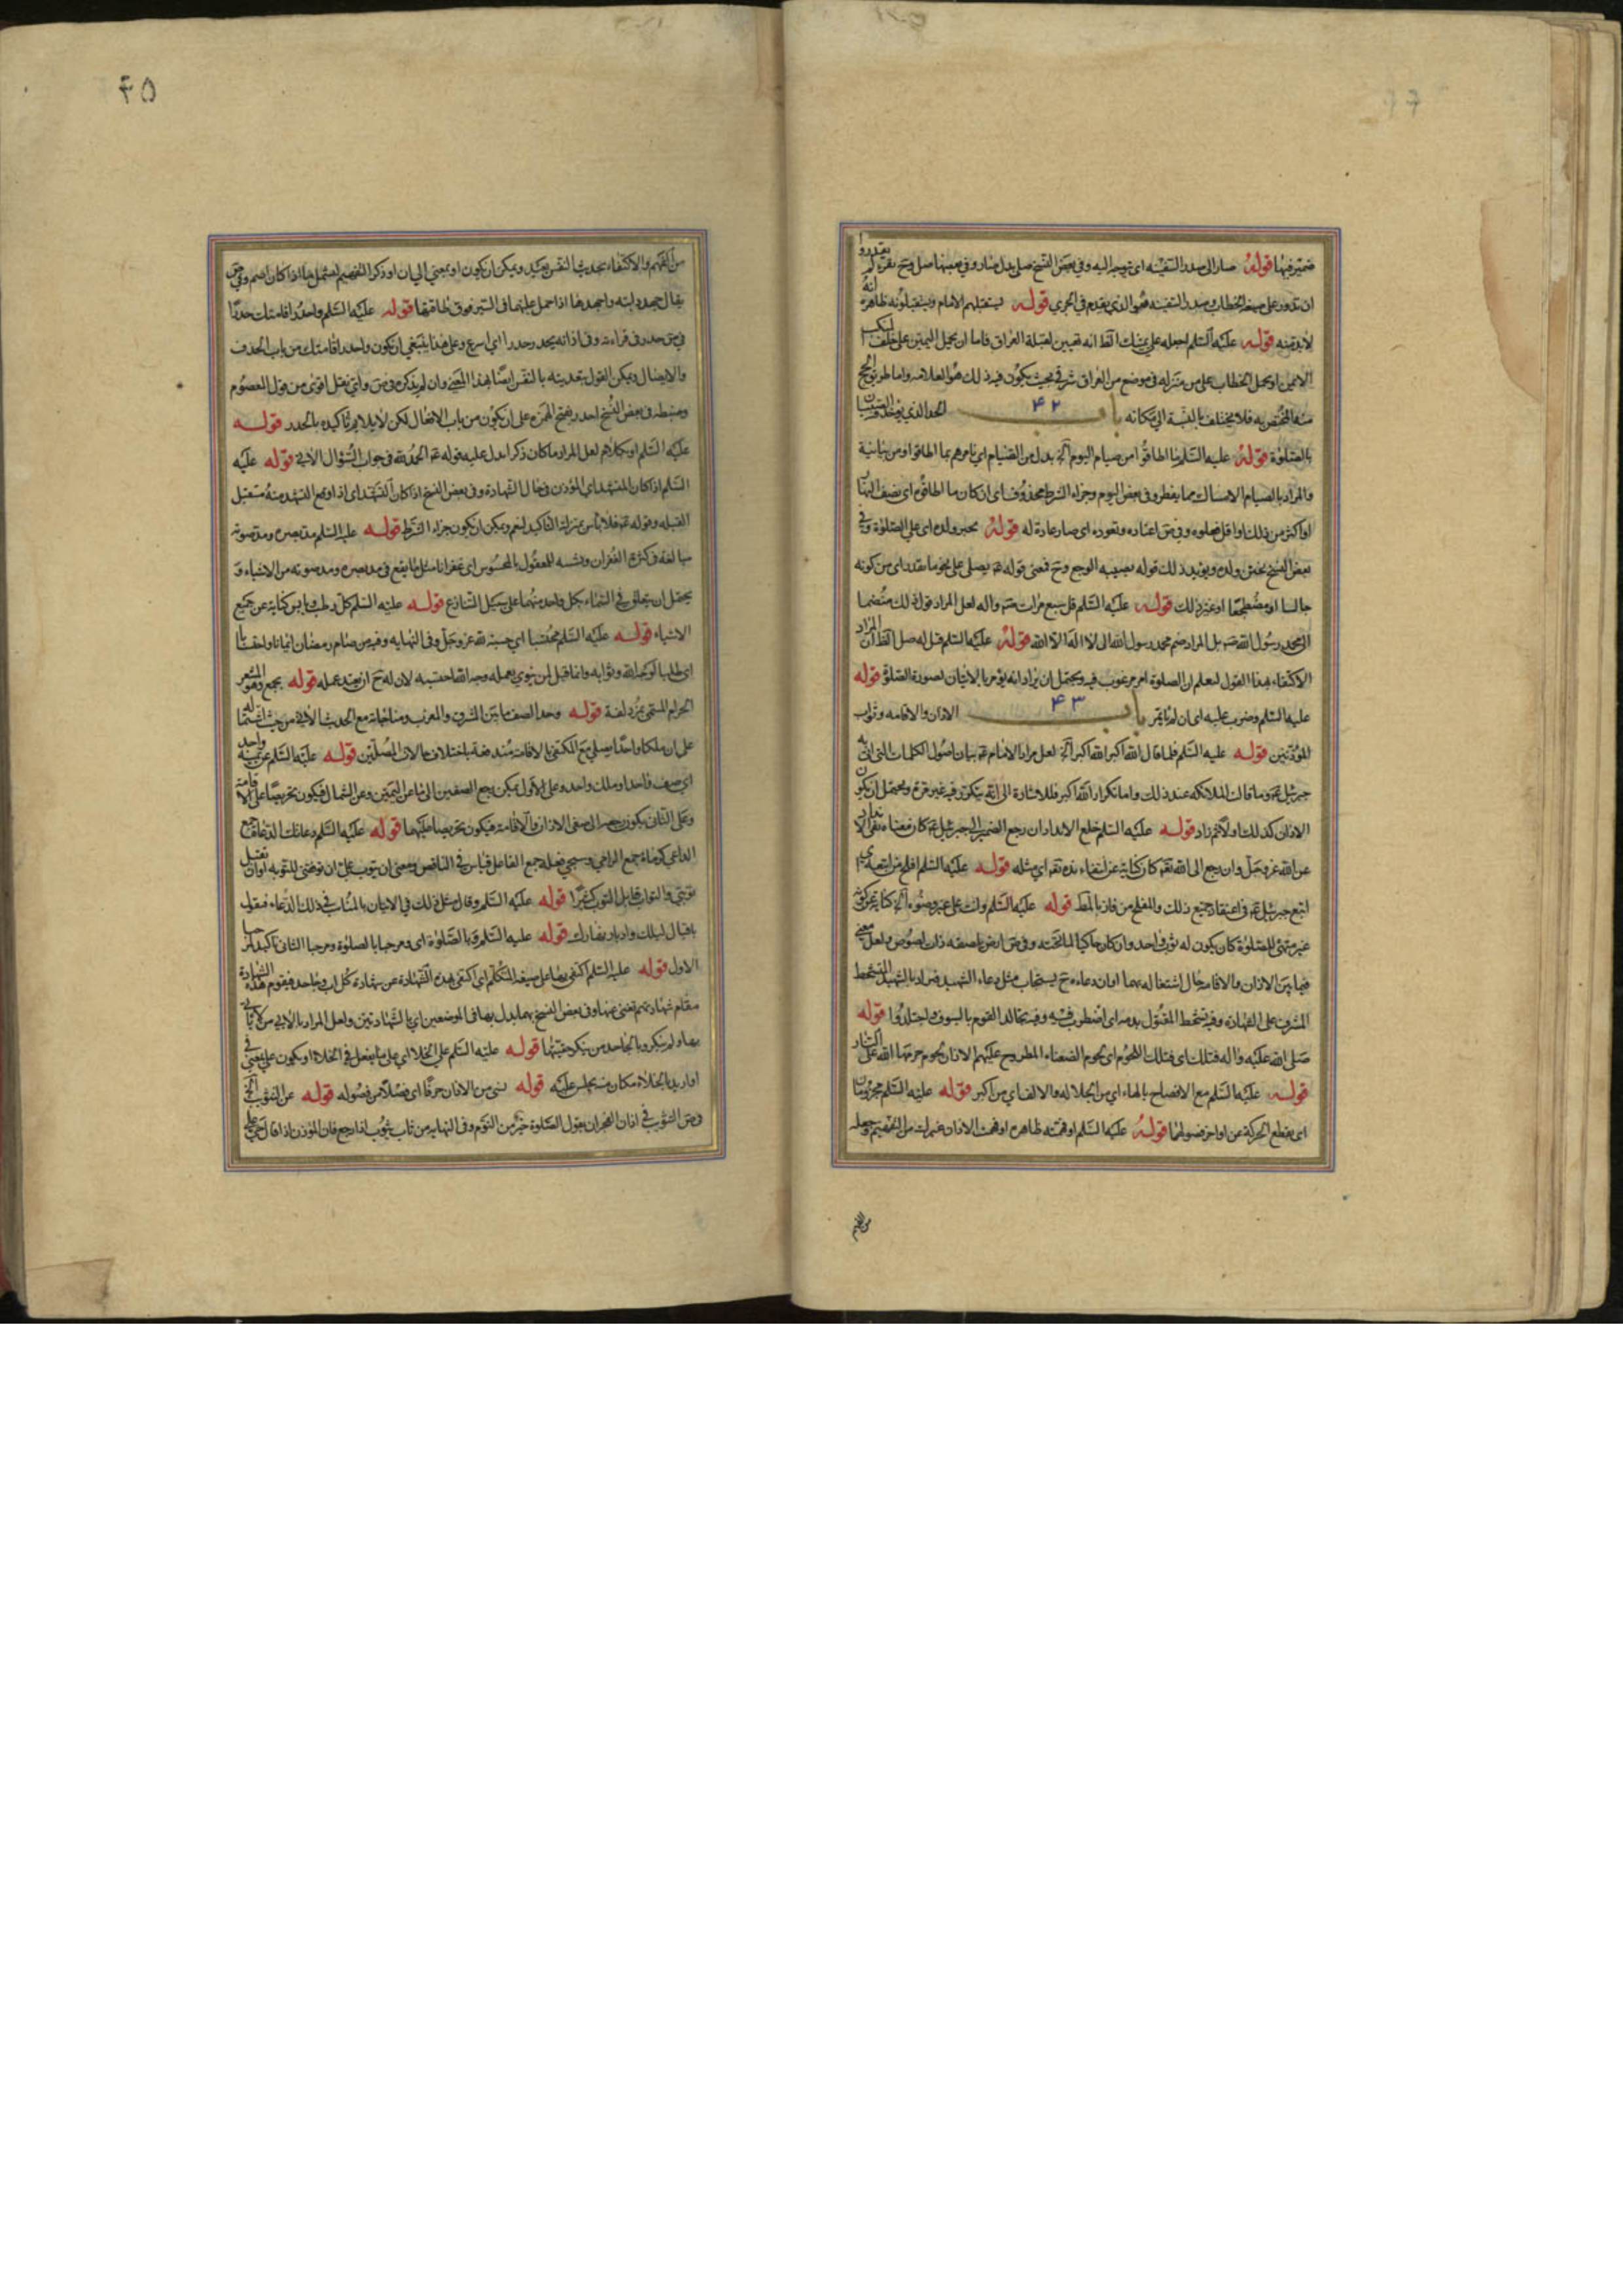 ضمير فيها قوله صار الى صدر السفينه اى توجه اليه وفى بعض النسخ صلى بدل صار وفى بعضها
ان تدور على صيغه الخطاب وصدر السفينه هو الذى يقدم فى الجرى قوله يستقبلهم الامام ويستقبلونه ظاهره انه
لابد منه قوله عليه السلم اجعله على يمينك الظ انه تعيين لقبلة العراق فاما ان يحمل اليمين على خلف المنكب
الايمن او يحمل الخطاب على من منزله فى موضع من العراق شرقى بحيث يكون فيه ذلك هو العلامه واما طريق الحج
فلا يختلف بالنسبة الى مكانه باب ۴۲ الحد الذى يؤخذ فيه الصبيان
بالصلوة قوله عليه السلم بما اطاقوا من صيام اليوم الخ بدل من الصيام اى نامرهم بما اطاقوا ومن بيانية
والمراد بالصيام الامساك عما يفطر وفى بعض اليوم وجزاء الشرط محذوف اى ان كان ما اطاقوه اى نصف النهار
او اكثر من ذلك او اقل فعلوه وفى ص اعتاده وتعوده اى صار عادة له قوله يجبر ولده اى على الصلوة وفى
بعض النسخ يختن ولده ويؤيد ذلك قوله يصيبه الوجع وح فمعنى قوله ع يصلى على نحو ما يقدر اى من كونه
جالسا او مضطجعا او غير ذلك قوله عليه السلم قل سبع مرات صلى الله عليه واله لعل المراد قول ذلك منضما
الى محمد رسول الله بل المراد ضم محمد رسول الله الى لا اله الا الله قوله عليه السلم قيل له صل الظ ان المراد
الاكتفاء بهذا القول ليعلم ان الصلوة امر مرغوب فيه ويحتمل ان يراد انه يؤمر بالاتيان لصورة الصلوة قوله
عليه السلم وضرب عليه اى ان لم ياتمر باب ۴۳ الاذان والاقامه وثواب
المؤذنين قوله عليه السلم فلما قال الله اكبر الله اكبر الخ لعل مراد الامام ع بيان اصول الكلمات التى اتى به
جبرئيل ع وما قالت الملائكه عند ذلك واما تكرار الله اكبر فللاشارة الى انه يتكرر فيه غير مرة ويحتمل ان يكون
الاذان كذلك اولا ثم زاد قوله عليه السلم خلع الانداد ان رجع الضمير الى جبرئيل ع كان معناه نفى الانداد
عن الله عز وجل وان رجع الى الله تع كان كناية عن انتفاء نده تع اى مثله قوله عليه السلم افلح من اتبعه اى
اتبع جبرئيل ع فى اعتقاد جميع ذلك والمفلح من فاز بالمط قوله عليه السلم وانت على غير وضوء الخ كناية عن كونه
غير متهيئ للصلوة كان يكون له ثوب واحد وان كان حاكيا لما تحته وفى ص ارض بها صفه ذات لصوص ولعل معنى
فيما بين الاذان والاقامه حال اشتغاله بهما اوان دعاءه ح يستجاب مثل دعاء الشهيد فمراد بالشهيد المتشحط
المشرف على الشهاده وفيه تشحط المقتول بدمه اى اضطرب فيه وفيه تجالد القوم بالسيوف واجتلدوا قوله
صلى الله عليه واله فتلك اى فتلك اللحوم اى لحوم الضعفاء المطروح عليهم الاذان لحوم حرمها الله على النار
قوله عليه السلم مع الافصاح بالهاء اى من الجلاله والالف اى من اكبر قوله عليه السلم مجزومان
اى يقطع الحركة عن اواخر فصولهما قوله عليه السلم او فهمته ظاهره او فهمت الاذان غيرك من التفهيم وجعله
من الفهم
۴۵
من الفهم والاكتفاء بحديث النفس بعيد ويمكن ان يكون او بمعنى الى ان او ذكر التفهيم
يقال جهد دابته واجهدها اذا حمل عليها فى السير فوق طاقتها قوله عليه السلم واحدر اقامتك حدرا
فى ص حدر فى قراءته وفى اذانه يحدر حدرا اى اسرع وعلى هذا ينبغى ان يكون واحدر اقامتك من باب الحذف
والايصال ويمكن القول بتعديته بالنفس ايضا بهذا المعنى وان لم يذكره فى ص واى نقل اقوى من قول المعصوم
وضبطه فى بعض النسخ احدر بفتح الهمزه على ان يكون من باب الافعال لكن لا يلايم تاكيده بالحدر قوله
عليه السلم او بكلام لعل المراد ما كان ذكرا يدل عليه قوله ع الحمد لله فى جواب السؤال الاتى قوله عليه
السلم اذا كان المتشهد اى المؤذن فى حال الشهادة وفى بعض النسخ اذا كان التشهد اى اذا وقع التشهد منه مستقبل
القبله وقوله ع فلا باس بمنزلة التاكيد لنعم ويمكن ان يكون جزاء الشرط قوله عليه السلم مد بصره ومد صوته
مبالغه فى كثرة الغفران وتشبيه للمعقول بالمحسوس اى غفرانا مثل ما يقع فى مد بصره ومد صوته من الاشياء وقد
يحتمل ان يتعلق فى السماء بكل واحد منهما على سبيل التنازع قوله عليه السلم كل رطب ويابس كناية عن جميع
الاشياء قوله عليه السلم محتسبا اى حسبة لله عز وجل وفى النهايه وفيه من صام رمضان ايمانا واحتسابا
اى طلبا لوجه الله وثوابه وانما قيل لمن ينوى بعمله وجه الله احتسبه لان له ح ان يعتد عمله قوله بجمع وهو المشعر
الحرام المسمى بمزدلفة قوله وحد الصف ما بين المشرق والمغرب ومنافاته مع الحديث الاتى من حيث اشتماله
على ان ملكا واحدا يصلى مع المكتفى بالاقامه مندفعة باختلاف حالات المصلين قوله عليه السلم عن يمينه واحد
اى صف واحد او ملك واحد وعلى الاول يمكن رجع الصفين الى ما عن اليمين وعن الشمال فيكون تحريصا على الاقامة
وعلى الثانى يكون رجعهما الى صفى الاذان والاقامه فيكون تحريصا عليهما قوله عليه السلم دعائك الدعاة جمع
الداعى كرماة جمع الرامى وسيجئ فعله جمع الفاعل قياس فى الناقص ومعنى ان يتوب على ان توفقنى للتوبه او ان تقبل
توبتى والتواب قابل التوب كثيرا قوله عليه السلم وقال مثل ذلك فى الاتيان بالمساء فى ذلك الدعاء فيقول
باقبال ليلك وادبار نهارك قوله عليه السلم وبالصلوة اى ومرحبا بالصلوة ومرحبا الثانى تاكيد لمرحبا
الاول قوله عليه السلم اكتفى بها على صيغه المتكلم اى اكتفى بهذه الشهادة عن شهادة كل اب وجاحد فيقوم هذه الشهادة
مقام شهادتهم تغنى عنها وفى بعض النسخ بهما بدل بها فى الموضعين اى بالشهادتين ولعل المراد بالابى من لا ياتى
بها ولم ينكر وبالجاحد من ينكر حقيتها قوله عليه السلم على الخلا اى على ما يفعل فى الخلاء او يكون على بمعنى فى
او اريد بالخلاء مكان منه يجلس عليه قوله ننى من الاذان حرفا اى فصلا من فصوله قوله عن التثويب الخ
فى ص التثويب فى اذان الفجر ان يقول الصلوة خير من النوم وفى النهايه من ثاب يثوب اذا رجع فان المؤذن اذا قال حى على